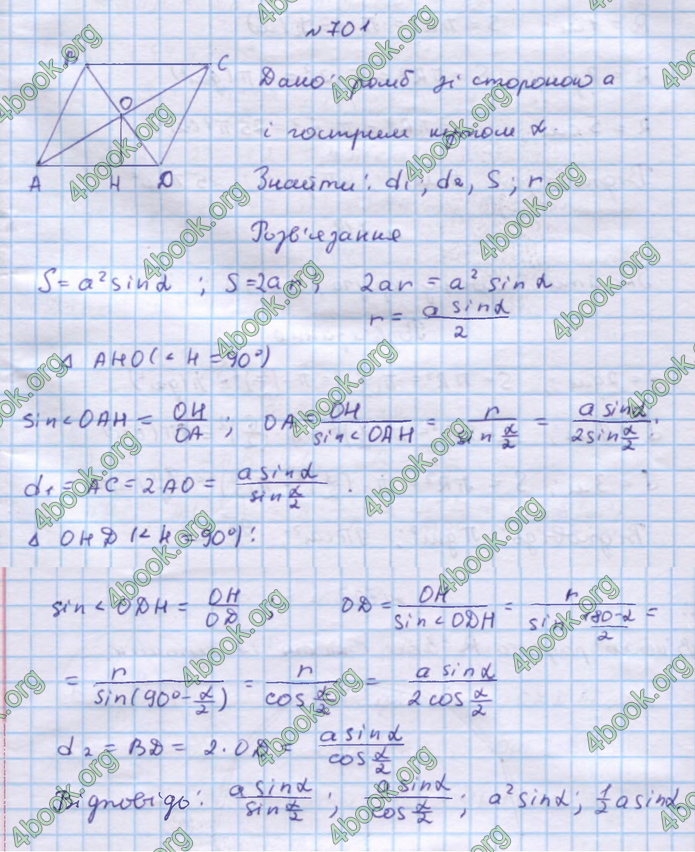 №701
B C
O
A H D
Дано: ромб зі стороною a
і гострим кутом α.
Знайти: d₁, d₂, S; r
Розв'язання
S = a² sin α ; S = 2ar; 2ar = a² sin α
r = (a sin α)/2
Δ AHO (∠H = 90°)
sin∠OAH = OH/OA ; OA = OH/(sin∠OAH) = r/(sin α/2) = (a sin α)/(2 sin α/2).
d₁ = AC = 2AO = (a sin α)/(sin α/2).
Δ OHD (∠H = 90°):
sin∠ODH = OH/OD ; OD = OH/(sin∠ODH) = r/(sin (180-α)/2) =
= r/(sin(90° - α/2)) = r/(cos α/2) = (a sin α)/(2 cos α/2)
d₂ = BD = 2·OD = (a sin α)/(cos α/2)
Відповідь: (a sin α)/(sin α/2) ; (a sin α)/(cos α/2) ; a² sin α ; 1/2 a sin α
4book.org